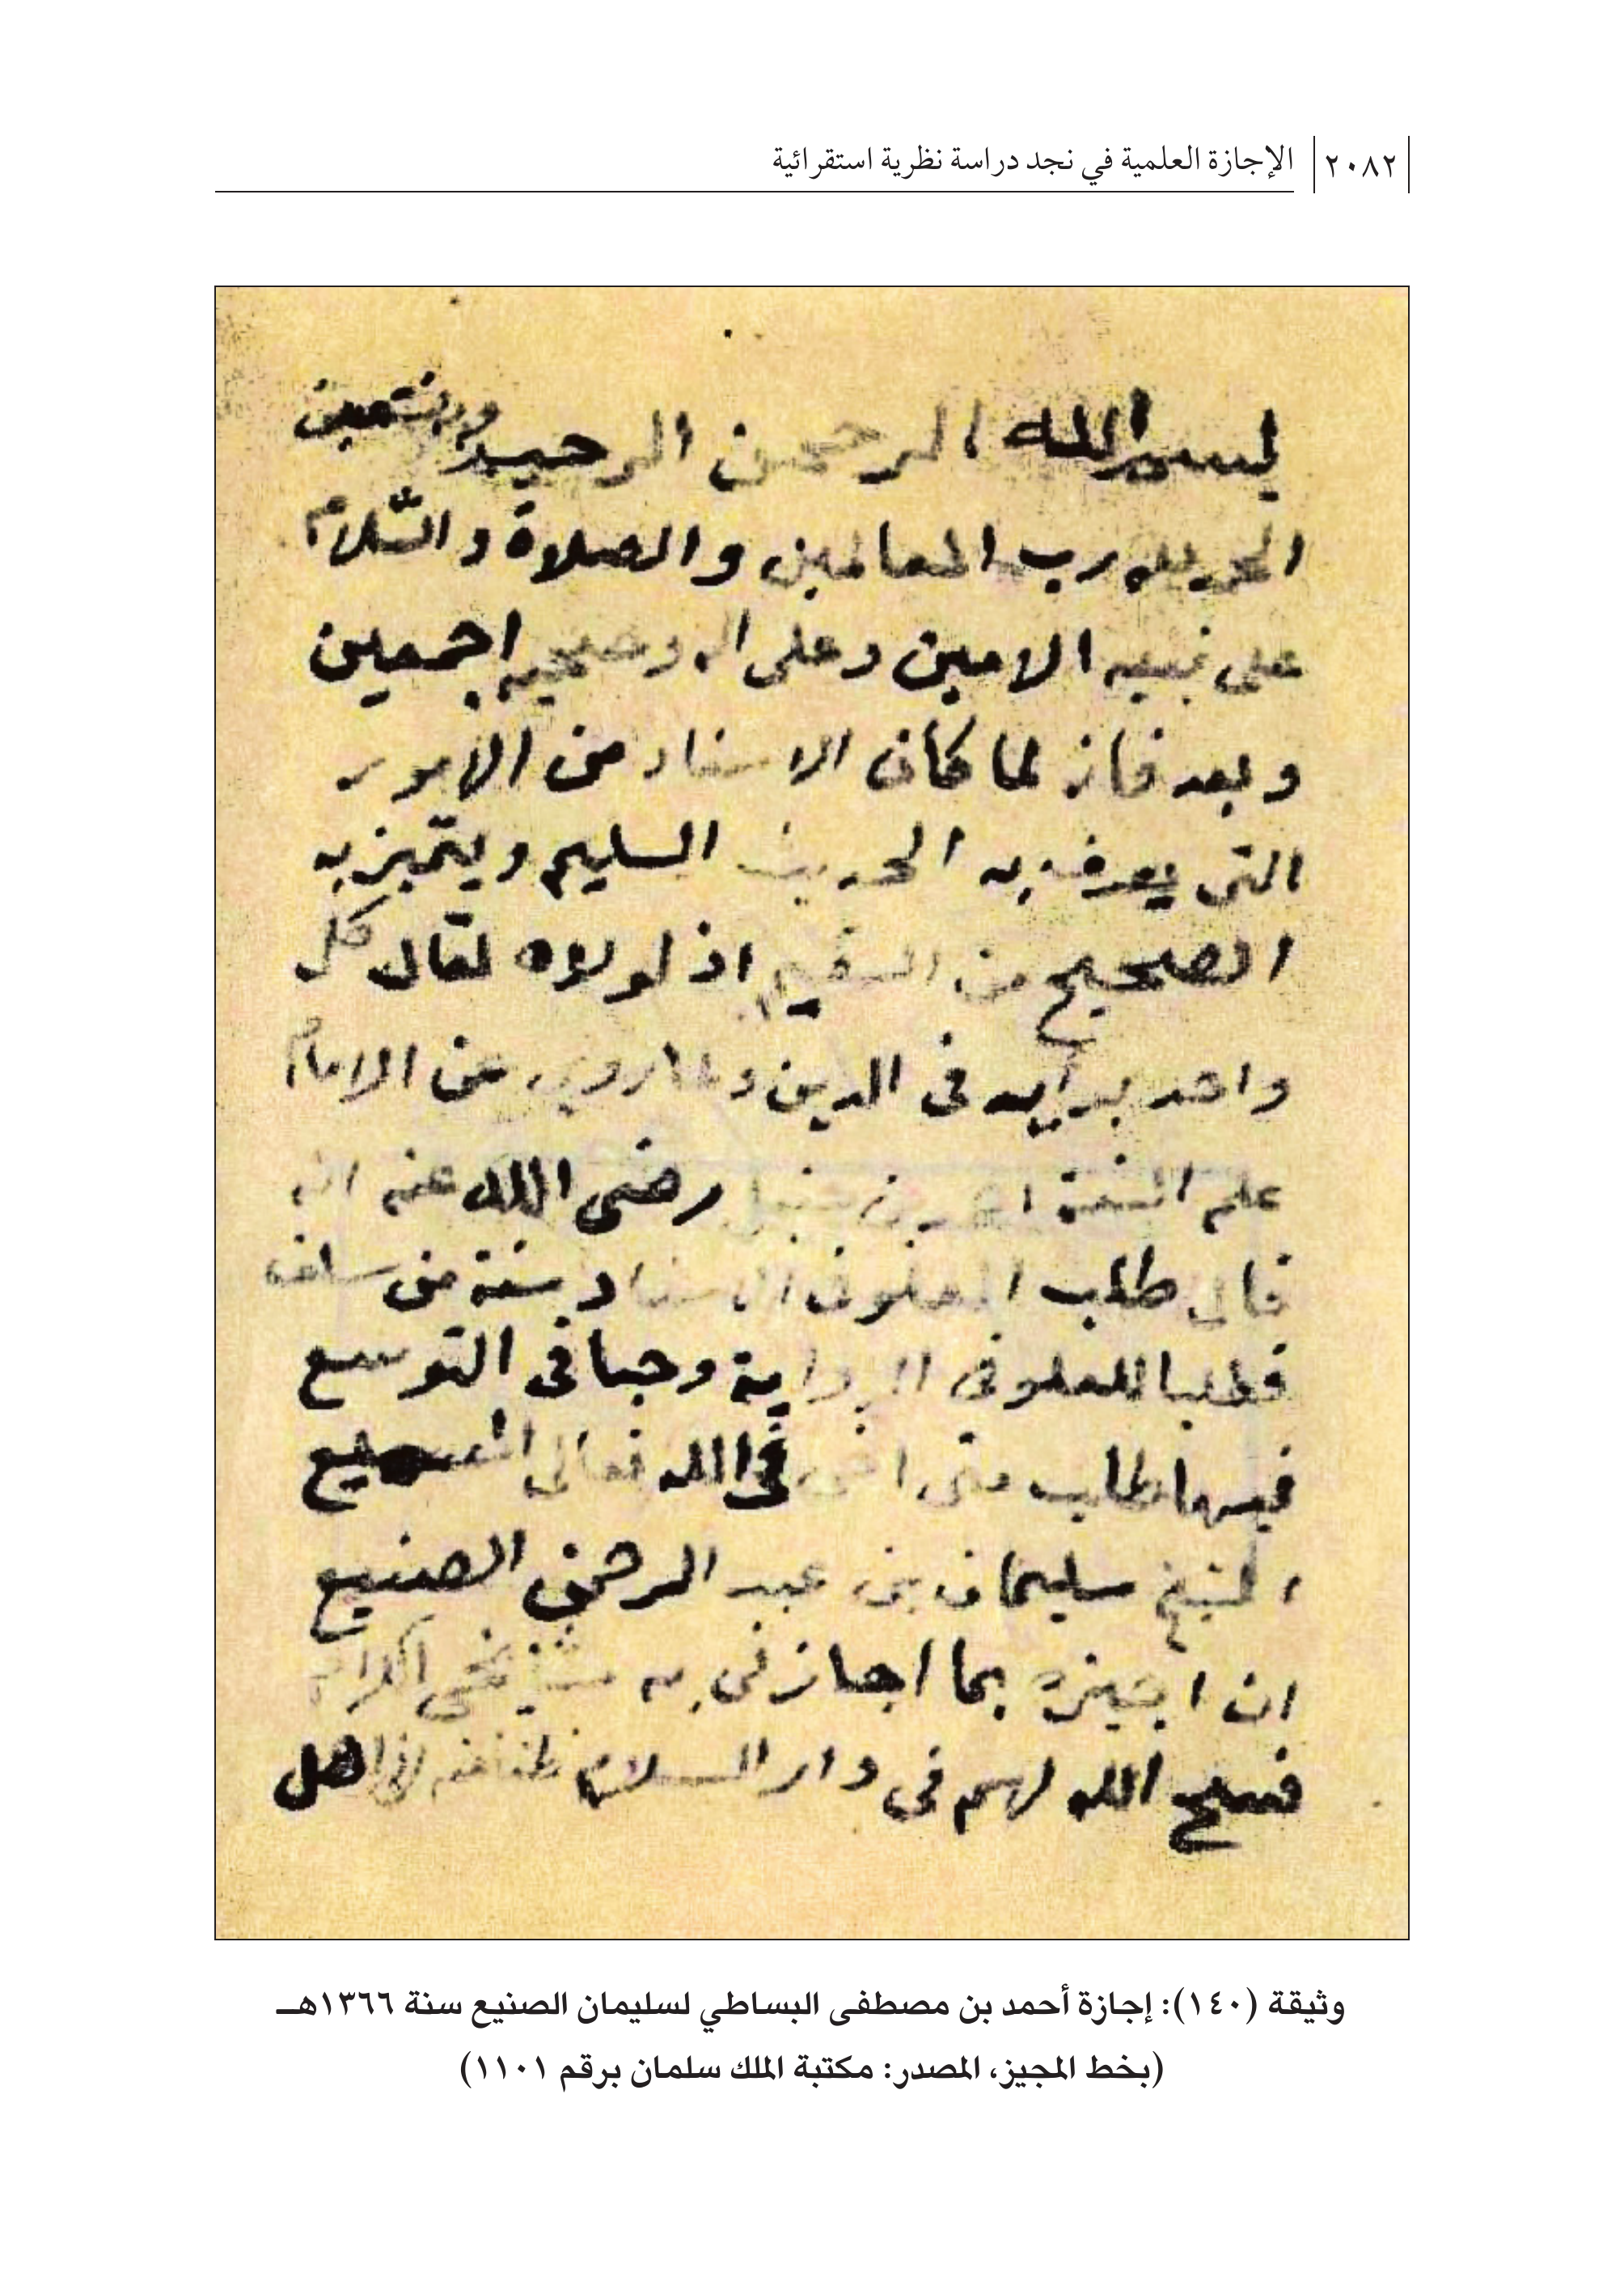 ٢٠٨٢
الإجازة العلمية في نجد دراسة نظرية استقرائية
بسم الله الرحمن الرحيم وبه نستعين
الحمد لله رب العالمين والصلاة والسّلام
على نبيه الامين وعلى اله وصحبه اجمعين
وبعد فانه لما كان الاسناد من الامور
التى يعرف به الحديث السليم ويتميز به
الصحيح من السقيم اذ لولاه لقال كل
واحد برأيه فى الدين ولما روى عن الامام
علم السنة احمد بن حنبل رضى الله عنه انه
قال طلب العلو فى الاسناد سنة من سلف
فطلبا للعلو فى الرواية وحبا فى التوسع
فيها طلب منى اخى فى الله تعالى
الشيخ سليمان بن عبد الرحمن الصنيع
ان اجيزه بما اجازنى به مشايخى الكرام
فسح الله لهم فى دار السلام ظنا منه انى اهل
وثيقة (١٤٠): إجازة أحمد بن مصطفى البساطي لسليمان الصنيع سنة ١٣٦٦هـ
(بخط المجيز، المصدر: مكتبة الملك سلمان برقم ١١٠١)